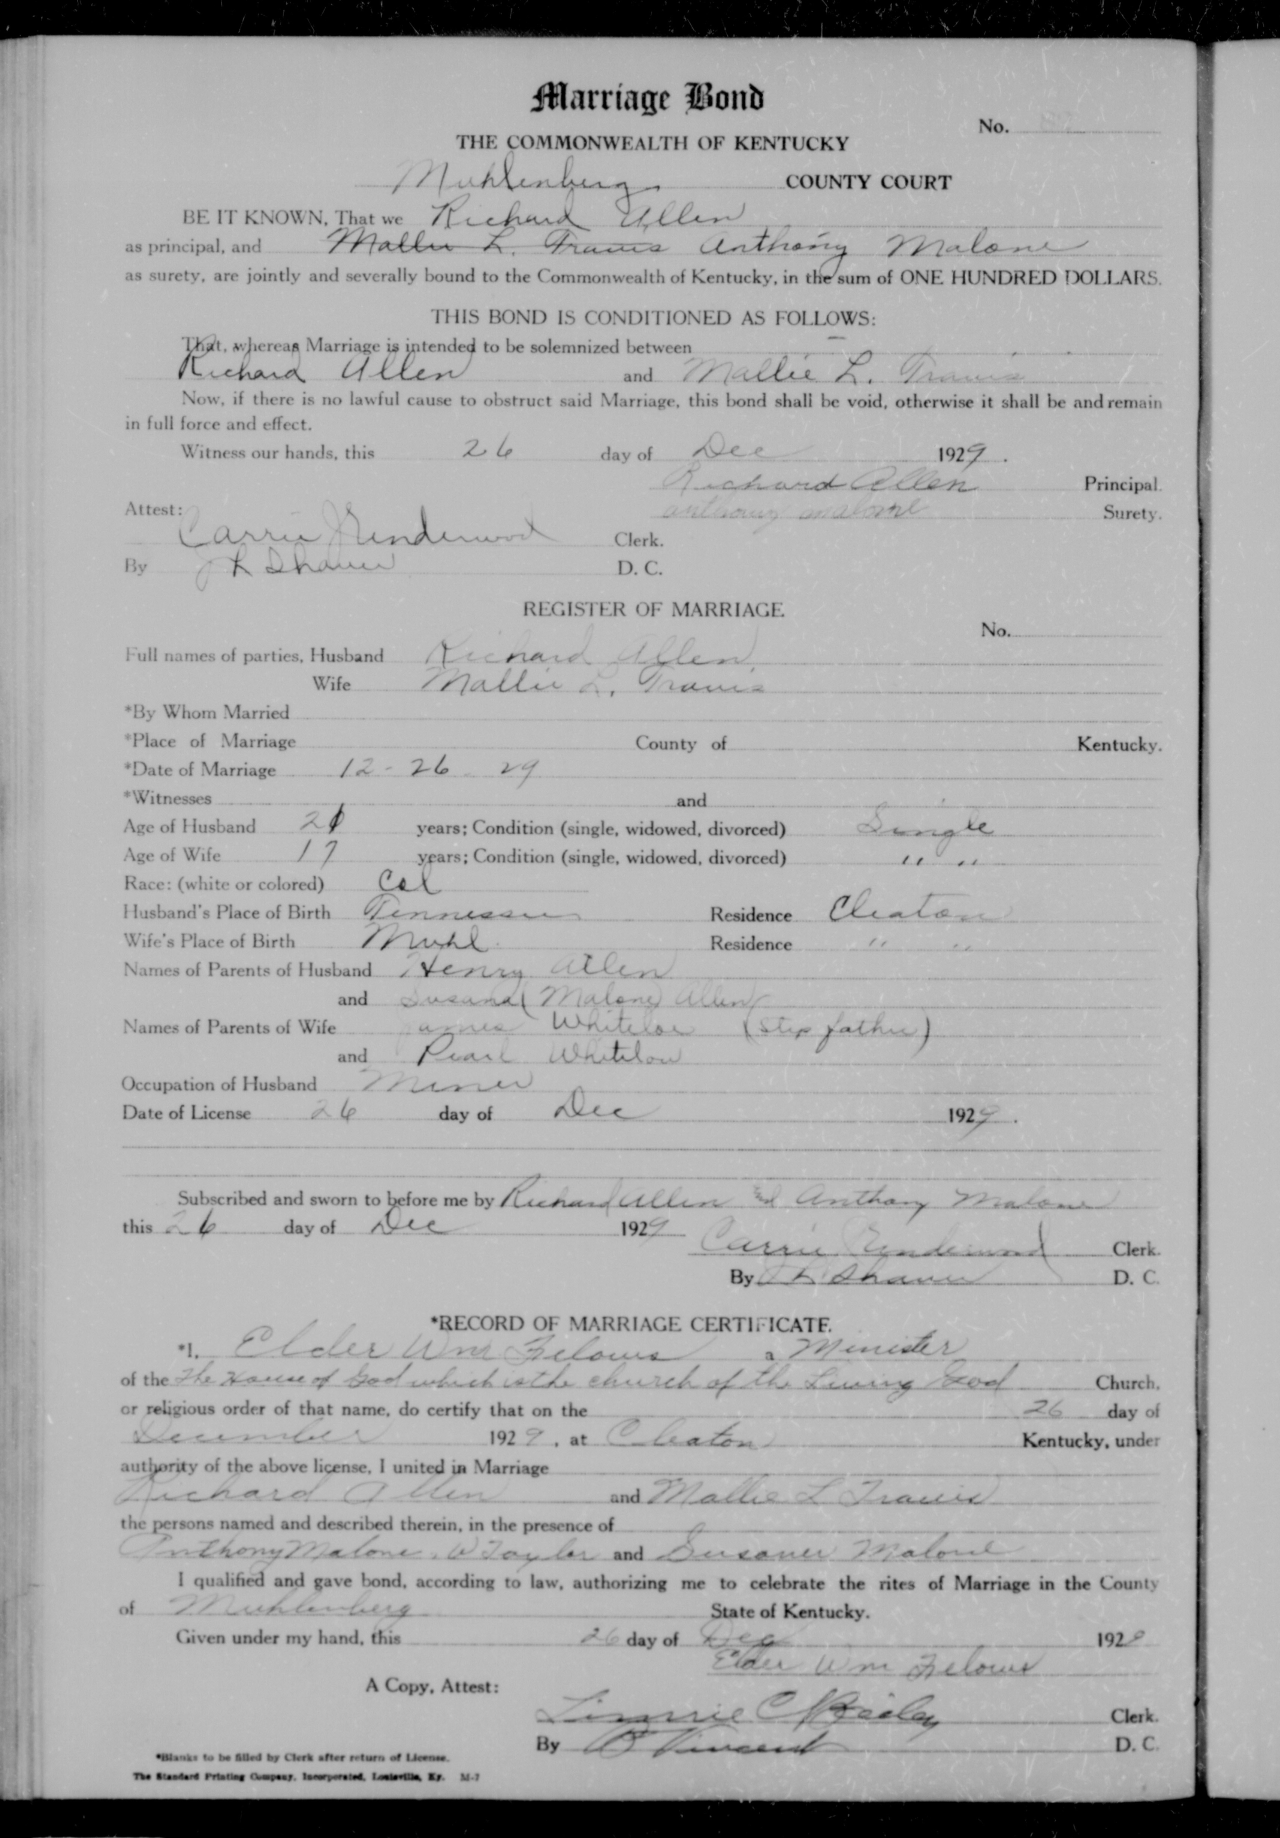 Marriage Bond
No.
THE COMMONWEALTH OF KENTUCKY
Muhlenberg COUNTY COURT
BE IT KNOWN, That we Richard Allen
as principal, and Mallie L. Travis Anthony Malone
as surety, are jointly and severally bound to the Commonwealth of Kentucky, in the sum of ONE HUNDRED DOLLARS.
THIS BOND IS CONDITIONED AS FOLLOWS:
That, whereas Marriage is intended to be solemnized between
Richard Allen and Mallie L. Travis
Now, if there is no lawful cause to obstruct said Marriage, this bond shall be void, otherwise it shall be and remain
in full force and effect.
Witness our hands, this 26 day of Dec 1929.
Richard Allen Principal.
Attest: anthony malone Surety.
Carrie Clerk.
By Shaver D. C.
REGISTER OF MARRIAGE
No.
Full names of parties, Husband Richard Allen
Wife Mallie L. Travis
*By Whom Married
*Place of Marriage County of Kentucky.
*Date of Marriage 12-26-29
*Witnesses and
Age of Husband 21 years; Condition (single, widowed, divorced) Single
Age of Wife 17 years; Condition (single, widowed, divorced) " "
Race: (white or colored) Col
Husband's Place of Birth Tennessee Residence Cleaton
Wife's Place of Birth Muhl. Residence " "
Names of Parents of Husband Henry Allen
and Susana (Malone) Allen
Names of Parents of Wife James Whitelow (Step father)
and Pearl Whitelow
Occupation of Husband Miner
Date of License 26 day of Dec 1929.
Subscribed and sworn to before me by Richard Allen and Anthony Malone
this 26 day of Dec 1929
Carrie Clerk.
By Shaver D. C.
*RECORD OF MARRIAGE CERTIFICATE.
*I, Elder Wm Felows a Minister
of the The House of God which is the church of the Living God Church,
or religious order of that name, do certify that on the 26 day of
December 1929, at Cleaton Kentucky, under
authority of the above license, I united in Marriage
Richard Allen and Mallie L Travis
the persons named and described therein, in the presence of
Anthony Malone, W Taylor and Susaner Malone
I qualified and gave bond, according to law, authorizing me to celebrate the rites of Marriage in the County
of Muhlenberg State of Kentucky.
Given under my hand, this 26 day of Dec 1929
Elder Wm Felows
A Copy, Attest:
Clerk.
By Vincent D. C.
*Blanks to be filled by Clerk after return of License.
The Standard Printing Company, Incorporated, Louisville, Ky. M-7